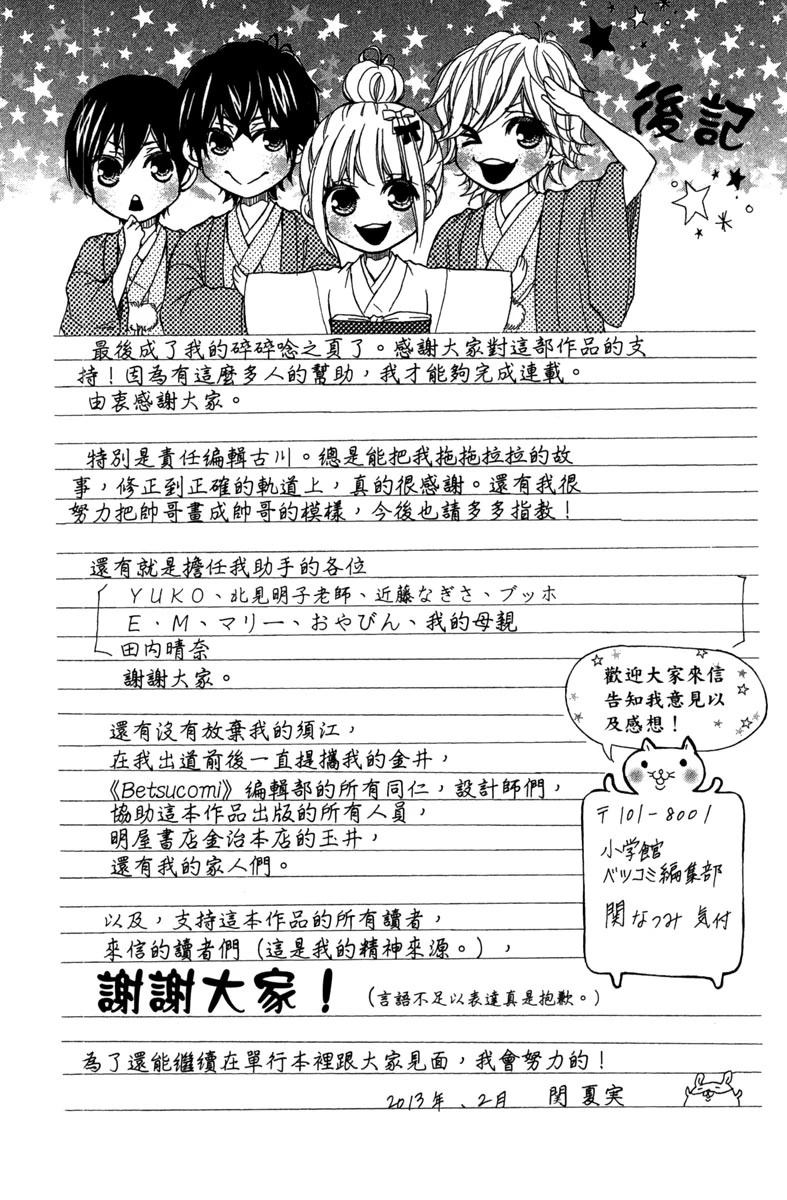 後記
最後成了我的碎碎唸之頁了。感謝大家對這部作品的支
持！因為有這麼多人的幫助，我才能夠完成連載。
由衷感謝大家。
特別是責任編輯古川。總是能把我拖拖拉拉的故
事，修正到正確的軌道上，真的很感謝。還有我很
努力把帥哥畫成帥哥的模樣，今後也請多多指教！
還有就是擔任我助手的各位
YUKO、北見明子老師、近藤なぎさ、ブッホ
E．M、マリー、おやびん、我的母親
田内晴奈
謝謝大家。
還有沒有放棄我的須江，
在我出道前後一直提攜我的金井，
《Betsucomi》編輯部的所有同仁，設計師們，
協助這本作品出版的所有人員，
明屋書店金治本店的玉井，
還有我的家人們。
以及，支持這本作品的所有讀者，
來信的讀者們（這是我的精神來源。），
謝謝大家！（言語不足以表達真是抱歉。）
為了還能繼續在單行本裡跟大家見面，我會努力的！
2013年、2月 関夏実
歡迎大家來信
告知我意見以
及感想！
〒101-8001
小学館
ベツコミ編集部
関なつみ 気付